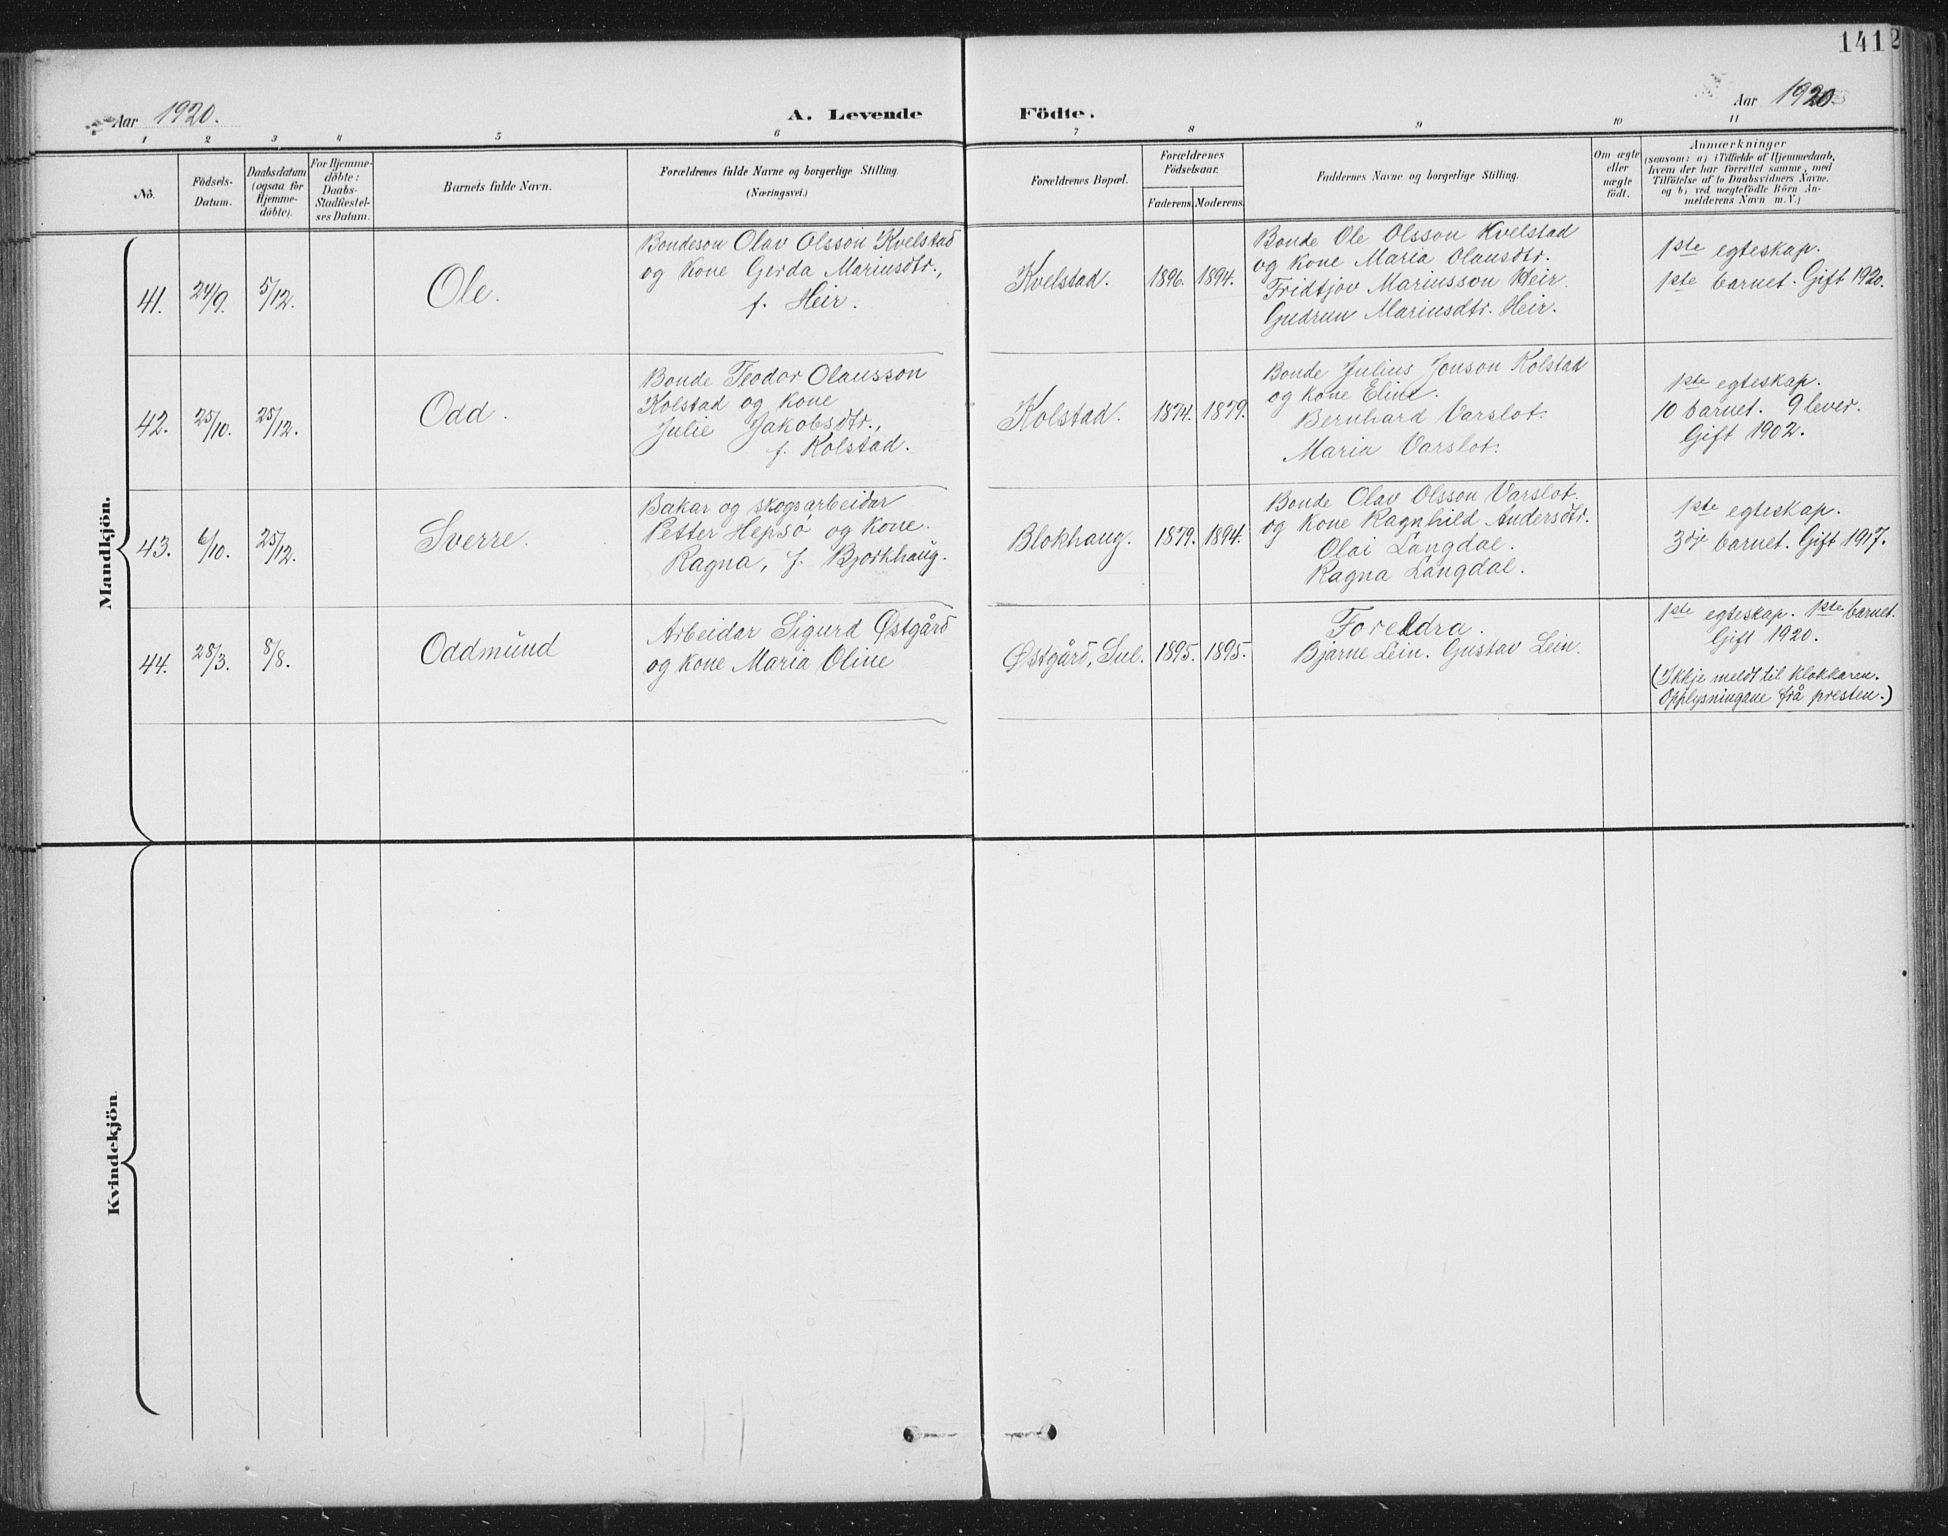 141
2
Aar 1920.
A. Levende
Födte.
Aar 1920
1 2 3 4 5 6 7 8 9 10 11
No.
Födsels-
Datum.
Daabsdatum
(ogsaa for
Hjemme-
döbte).
For Hjemme-
döbte:
Daabs-
Stadfæstel-
ses Datum.
Barnets fulde Navn.
Forældrenes fulde Navne og borgerlige Stilling.
(Næringsvei.)
Forældrenes Bopæl.
Forældrenes
Födselsaar.
Faderens.
Moderens.
Faddernes Navne og borgerlige Stilling.
Om ægte
eller
uægte
födt.
Anmærkninger
(saasom: a) i Tilfælde af Hjemmedaab,
hvem der har forrettet samme, med
Tilföielse af to Daabsvidners Navne.
og b) ved uægtefödte Börn An-
melderens Navn m. V.)
Mandkjön.
41.
24/9
5/12.
Ole.
Bondeson Olav Olsson Kvelstad
og kone Gerda Mariusdtr.,
f. Heir.
Kvelstad.
1896.
1894.
Bonde Ole Olsson Kvelstad
og kone Maria Olausdtr.
Fridtjov Mariusson Heir.
Gudrun Mariusdtr. Heir.
1ste egteskap.
1ste barnet. Gift 1920.
42.
25/10.
25/12.
Odd.
Bonde Teodor Olausson
Kolstad og kone
Julie Jakobsdtr.,
f. Kolstad.
Kolstad.
1874.
1879.
Bonde Julius Jonson Kolstad
og kone Eline.
Bernhard Varslot.
Maria Varslot.
1ste egteskap.
10 barnet. 9 lever.
Gift 1902.
43.
6/10.
25/12.
Sverre.
Bakar og skogsarbeidar
Petter Hepsø og kone.
Ragna, f. Bjorkhaug.
Blokhaug.
1879.
1894.
Bonde Olav Olsson Varslot.
og kone Ragnhild Andersdtr.
Olai Langdal.
Ragna Langdal.
1ste egteskap.
3dje barnet. Gift 1917.
44.
28/3.
8/8.
Oddmund
Arbeidar Sigurd Østgård
og kone Maria Oline
Østgård, Sul.
1895.
1895.
Foreldra.
Bjarne Lein. Gustav Lein.
1ste egteskap. 1ste barnet.
Gift 1920.
(Ikkje meldt til klokkaren.
Opplysningane frå presten.)
Kvindekjön.